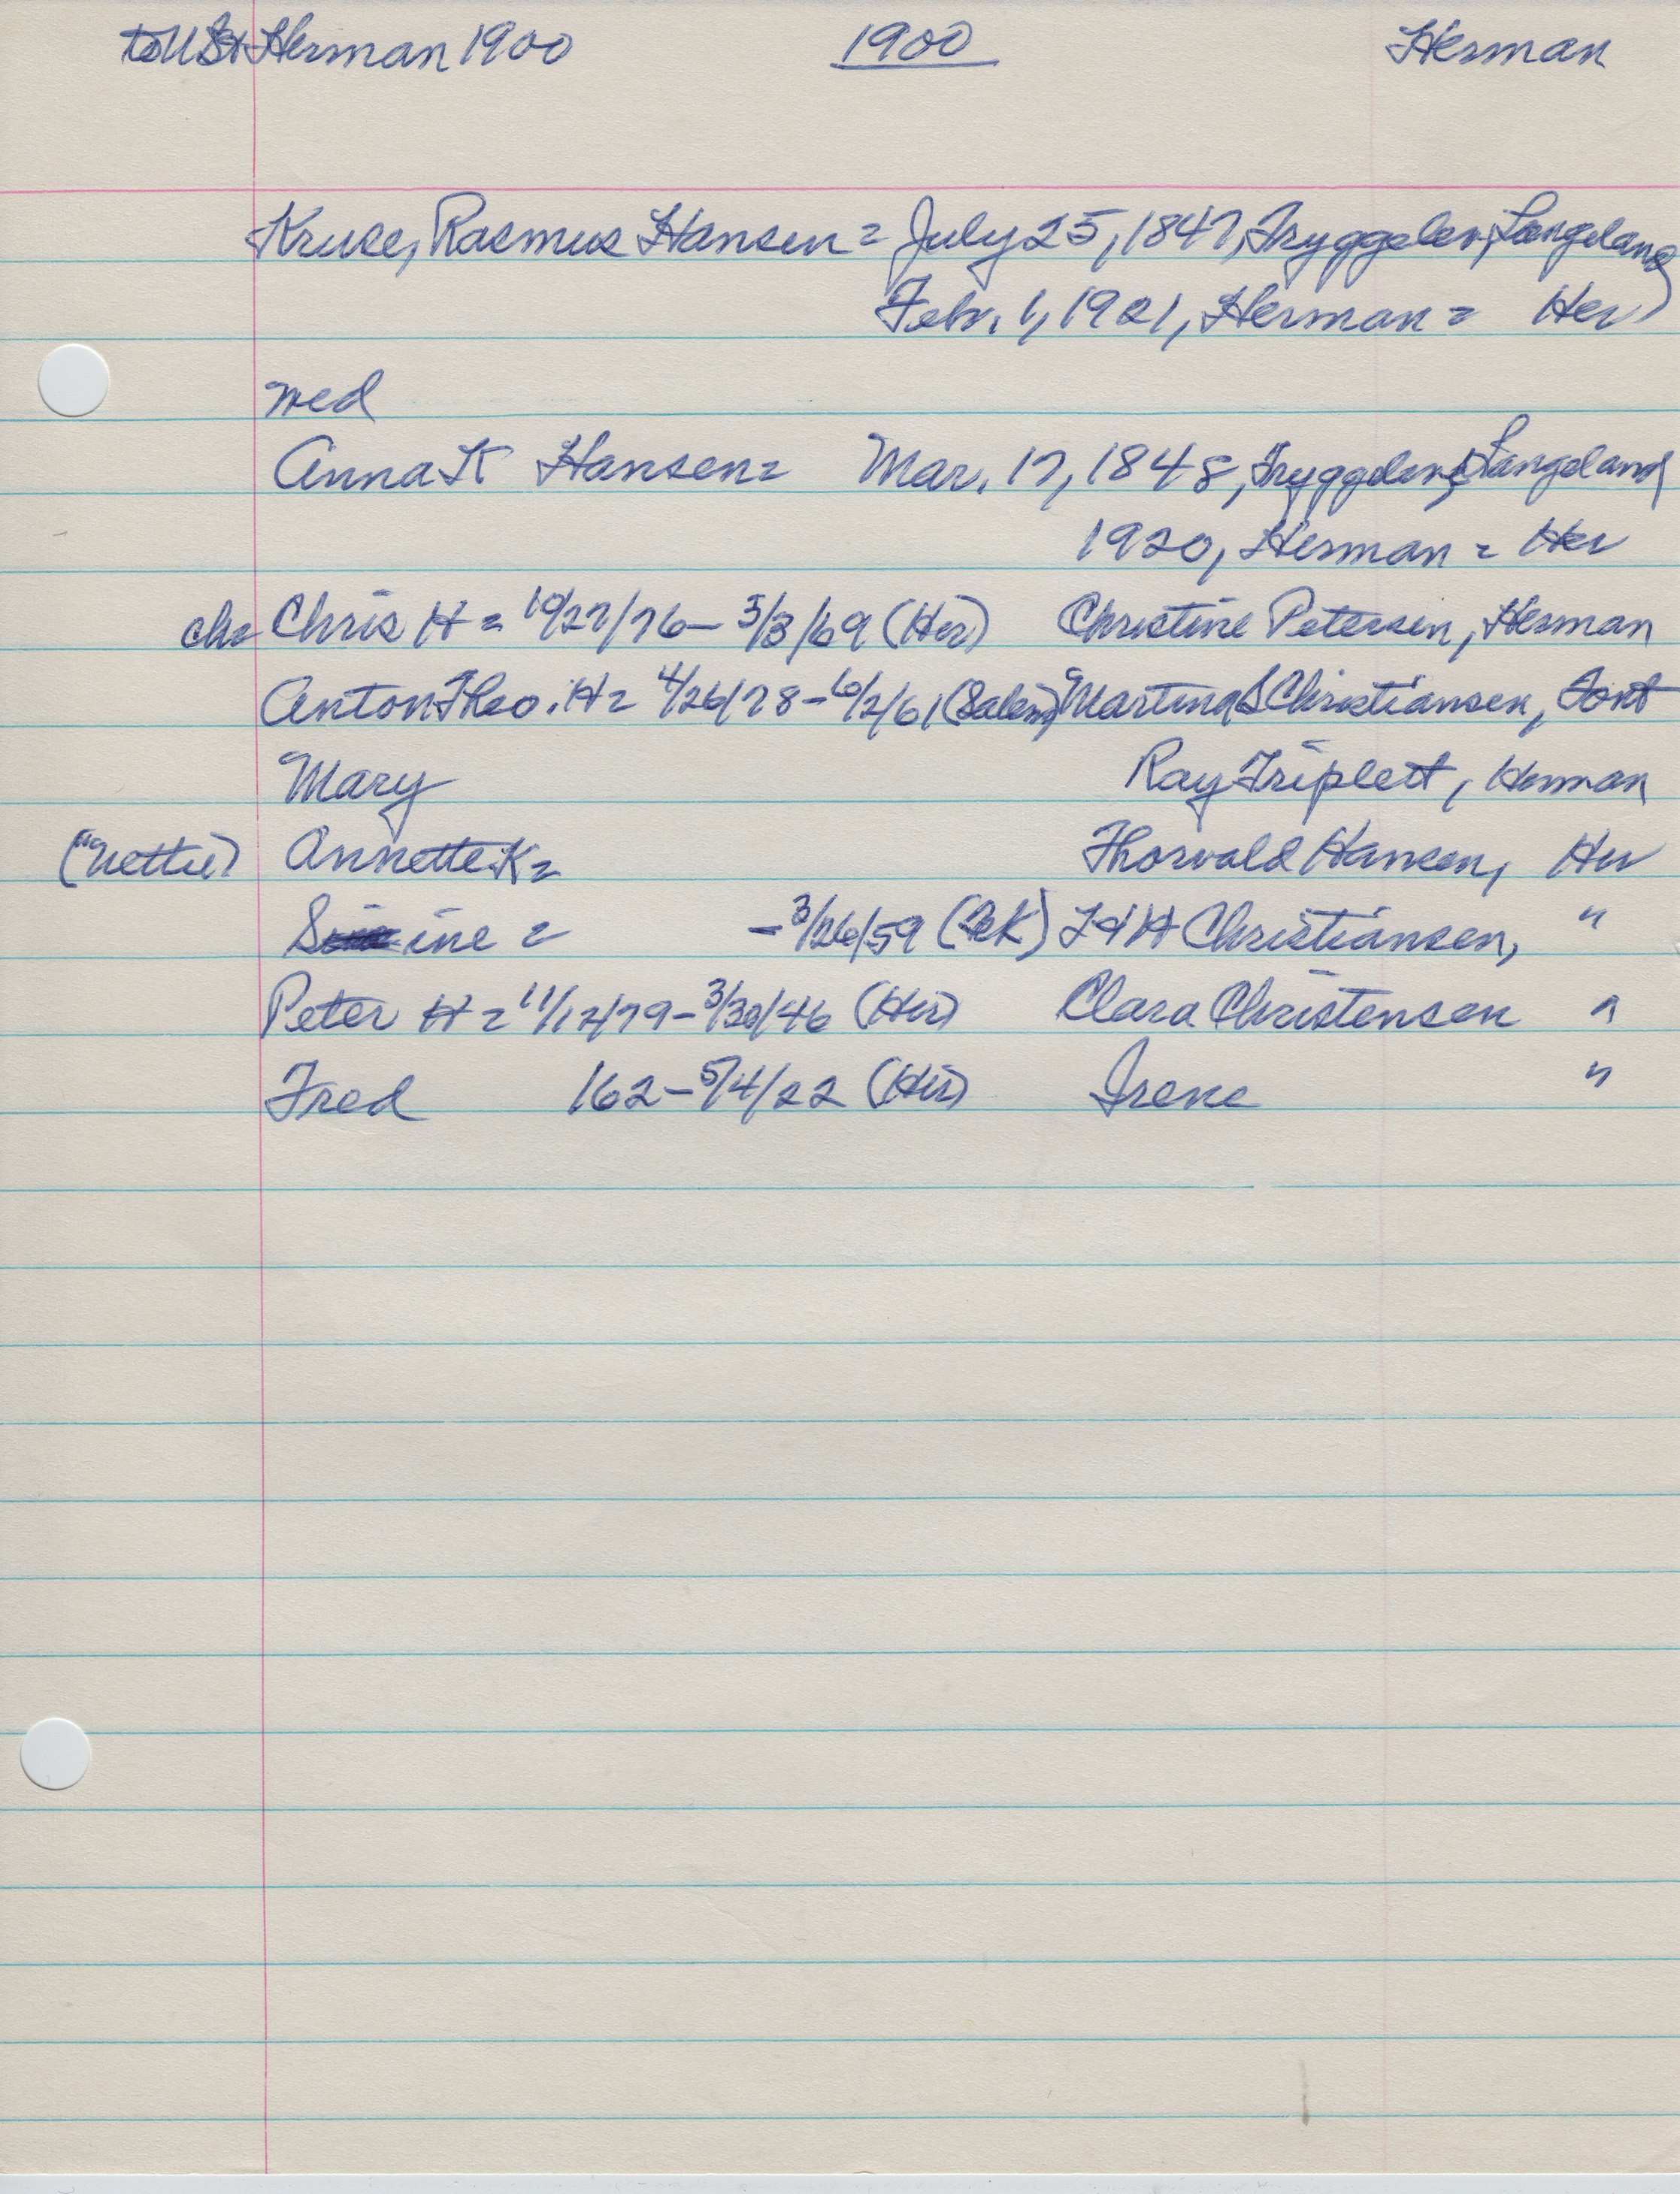 to US & Herman 1900 1900 Herman
Kruse, Rasmus Hansen = July 25, 1847, Tryggelev, Langeland
Febr. 1, 1921, Herman = Her
med
Anna K Hansen = Mar. 17, 1848, Tryggelev, Langeland
1920, Herman = Her
ch = Chris H = 10/27/76 - 3/3/69 (Her) Christine Petersen, Herman
Anton Theo. H = 4/26/78 - 6/2/61 (Salem) Martina S Christiansen,
Mary Ray Triplett, Herman
("Nettie) Annette K = Thorvald Hansen, Her
Sine = - 3/26/59 Christiansen, "
Peter H = 11/12/79 - 3/30/46 (Her) Clara Christensen "
Fred 162 - 5/4/22 (Her) Irene "